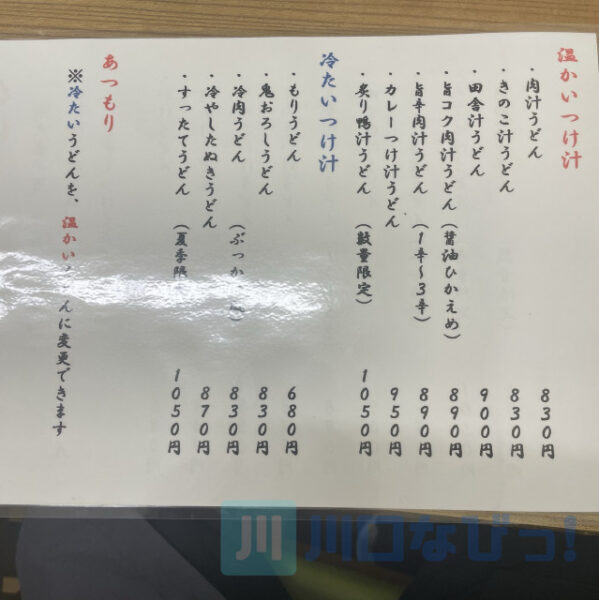 温かいつけ汁
・肉汁うどん 830円
・きのこ汁うどん 830円
・田舎汁うどん 900円
・旨コク肉汁うどん（醤油ひかえめ） 890円
・旨辛肉汁うどん（1辛～3辛） 890円
・カレーつけ汁うどん 950円
・炙り鴨汁うどん（数量限定） 1050円
冷たいつけ汁
・もりうどん 680円
・鬼おろしうどん 830円
・冷肉うどん（ぶっか 830円
・冷やしたぬきうどん 870円
・すったてうどん（夏季限 1050円
あつもり
※冷たいうどんを、温かい んに変更できます
川 川口なびっ!